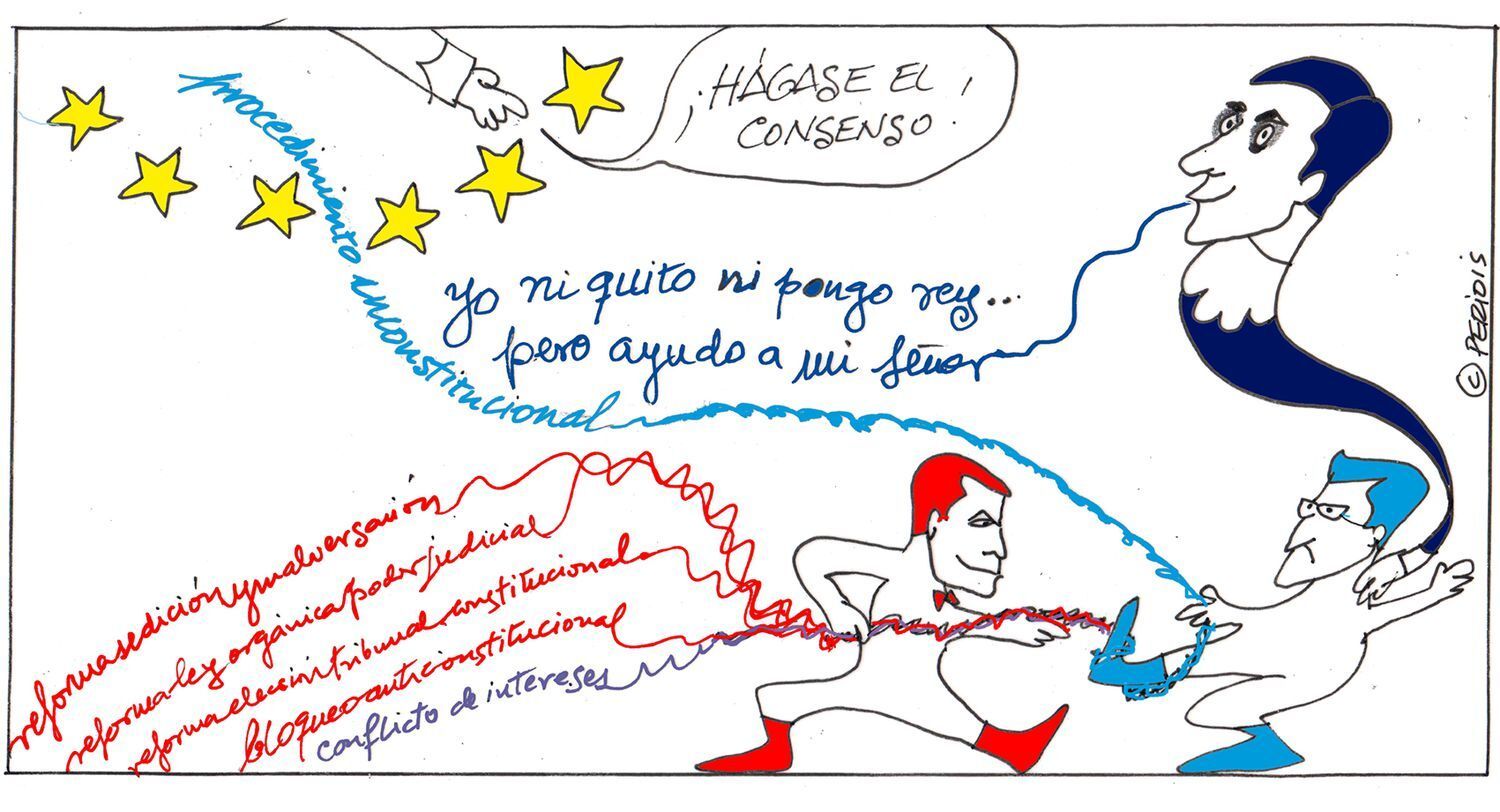 ¡HÁGASE EL
CONSENSO!
procedimiento inconstitucional
yo ni quito ni pongo rey...
pero ayudo a mi señor
© PERIDIS
reforma sedición y malversación
reforma ley orgánica poder judicial
reforma elección tribunal constitucional
bloqueo anticonstitucional
conflicto de intereses